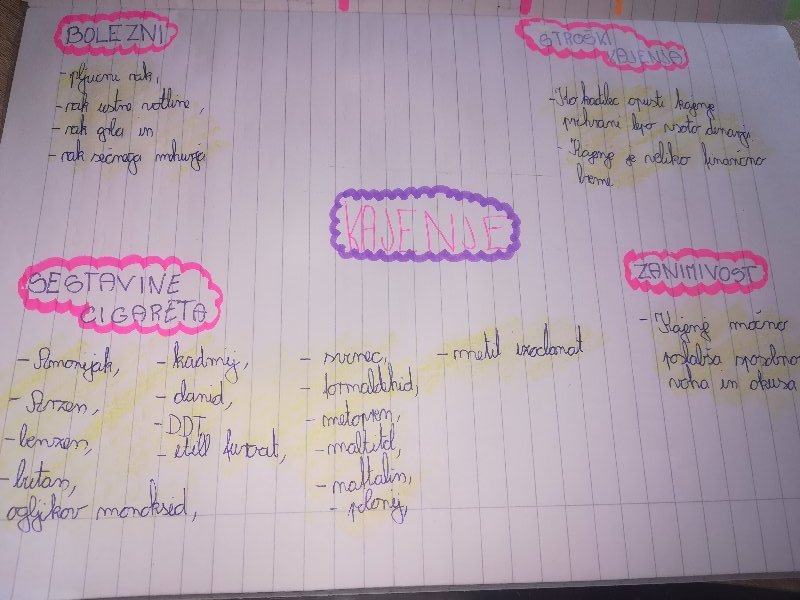 BOLEZNI
- pljučni rak,
- rak ustne votline,
- rak grla in
- rak sečnega mehurja
STROŠKI
KAJENJA
- Ko kadilec opusti kajenje
prihrani lepo vsoto denarja
- Kajenje je veliko finančno
breme
KAJENJE
SESTAVINE
CIGARETA
- Amonijak,
- Arzen,
- benzen,
- butan,
ogljikov monoksid,
- kadmij,
- cianid,
- DDT
- etill furoat,
- svinec,
- formaldehid,
- metopren,
- maltitol,
- naftalin,
- polonij,
- metil izocianat
ZANIMIVOST
- Kajenje močno
poslabša sposobno
voha in okusa